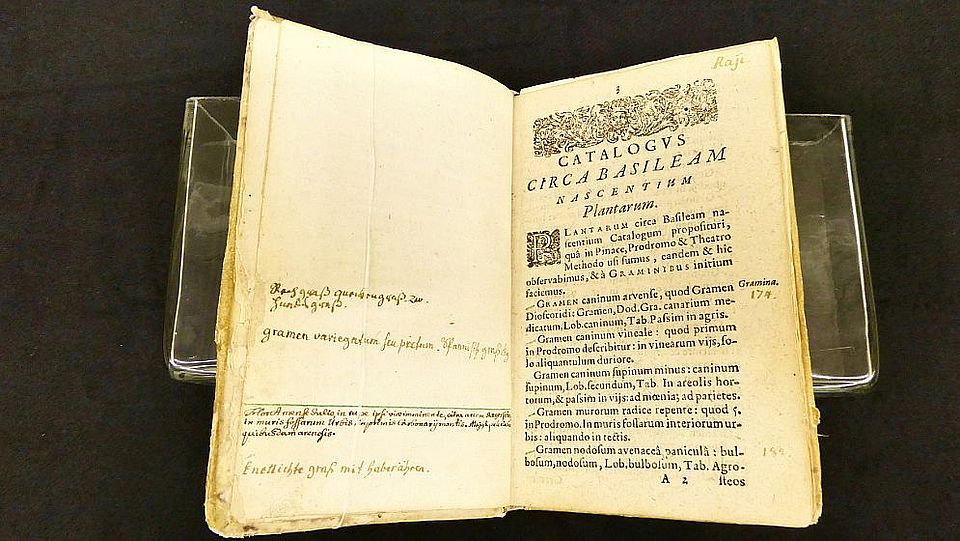 gramen variegatum seu pictum. Spannisch graß
in muris fossarum Urbis,
quibusdam arenosis.
Knotlichte graß mit haberähren.
Raji
3
CATALOGVS
CIRCA BASILEAM
NASCENTIUM
Plantarum.
PLANTARUM circa Basileam na-
scentium Catalogum proposituri,
quâ in Pinace, Prodromo & Theatro
Methodo usi sumus, eandem & hic
observabimus, & à GRAMINIBUS initium
faciemus.
Gramina.
174.
GRAMEN caninum arvense, quod Gramen
Dioscoridi: Gramen, Dod. Gra. canarium me-
dicatum, Lob. caninum, Tab. Passim in agris.
Gramen caninum vineale: quod primum
in Prodromo describitur: in vinearum vijs, so-
lo aliquantulum duriore.
Gramen caninum supinum minus: caninum
supinum, Lob. secundum, Tab. In areolis hor-
torum, & passim in vijs: ad mœnia; ad parietes.
Gramen murorum radice repente: quod 5.
in Prodromo. In muris fossarum interiorum ur-
bis: aliquando in tectis.
Gramen nodosum avenaceâ paniculâ: bul-
bosum, nodosum, Lob. bulbosum, Tab. Agro-
A 2 steos